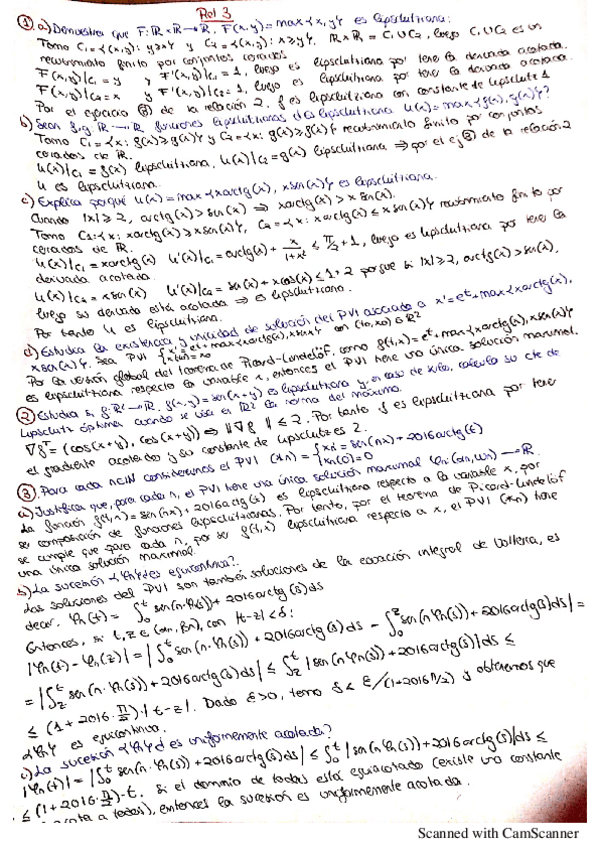 Rel 3
① a) Demuestra que F: ℝ×ℝ→ℝ, F(x,y)=max{x,y} es lipschitziana:
Tomo C₁={(x,y): y≥x} y C₂={(x,y): x≥y}. ℝ×ℝ = C₁∪C₂, luego C₁∪C₂ es un
recubrimiento finito por conjuntos cerrados
F(x,y)|C₁ = y y F'(x,y)|C₁ = 1, luego es lipschitziana por tener la derivada acotada.
F(x,y)|C₂ = x y F'(x,y)|C₂ = 1, luego es lipschitziana por tener la derivada acotada.
Por el ejercicio ⑧ de la relación 2, f es lipschitziana con constante de Lipschitz 1
b) Sean f,g: ℝ→ℝ funciones lipschitzianas ¿es lipschitziana u(x)=max{f(x),g(x)}?
Tomo C₁={x: f(x)≥g(x)} y C₂={x: g(x)≥f(x)} recubrimiento finito por conjuntos
cerados de ℝ.
u(x)|C₁ = f(x) lipschitziana, u(x)|C₂ = g(x) lipschitziana ⇒ por el ej ⑧ de la relación 2
u es lipschitziana.
c) Explica porqué u(x)=max{xarctg(x), xsen(x)} es lipschitziana.
Cuando |x|≥2, arctg(x)>sen(x) ⇒ xarctg(x) > x sen(x).
Tomo C₁={x: xarctg(x)≥xsen(x)}, C₂={x: xarctg(x)≤xsen(x)} recubrimiento finito por
cerrados de ℝ.
u(x)|C₁ = xarctg(x) u'(x)|C₁ = arctg(x) + x/(1+x²) ≤ π/2 + 1, luego es lipschitziana por tener la
derivada acotada.
u(x)|C₂ = xsen(x) u'(x)|C₂ = sen(x) + xcos(x) ≤ 1+2 porque si |x|≥2, arctg(x)>sen(x),
luego su derivada está acotada ⇒ es lipschitziana.
Por tanto u es lipschitziana.
d) Estudia la existencia y unicidad de solución del PVI asociado a x'=eᵗ+max{xarctg(x),
xsen(x)}. Sea PVI {x'=eᵗ+max{xarctg(x), xsenx} x(t₀)=x₀ con (t₀,x₀)∈ℝ²
Por la versión global del teorema de Picard-Lindelöf, como f(t,x)=eᵗ+max{xarctg(x), xsen(x)}
es lipschitziana respecto la variable x, entonces el PVI tiene una única solución maximal.
② Estudia si f: ℝ²→ℝ, f(x,y)=sen(x+y) es lipschitziana y, en caso de serlo, calcula su cte de
Lipschitz óptima cuando se usa el ℝ² la norma del máximo.
∇fᵀ = (cos(x+y), cos(x+y)) ⇒ ‖∇f‖ ≤ 2. Por tanto f es lipschitziana por tener
el gradiente acotado y su constante de Lipschitz es 2.
③ Para cada n∈ℕ consideramos el PVI (*n) = {x' = sen(nx) + 2016arctg(t) x(0)=0
a) Justifica que, para cada n, el PVI tiene una única solución maximal φn: (αn,ωn)→ℝ.
La función f(t,x)=sen(nx)+2016arctg(t) es lipschitziana respecto a la variable x, por
ser composición de funciones lipschitzianas. Por tanto, por el teorema de Picard-Lindelöf
se cumple que para cada n, por ser f(t,x) lipschitziana respecto a x, el PVI (*n) tiene
una única solución maximal.
b) La sucesión {φn} es equicontinua?
Las soluciones del PVI son también soluciones de la ecuación integral de Volterra, es
decir, φn(t) = ∫₀ᵗ sen(n·φn(s)) + 2016arctg(s)ds
Entonces, si t,z∈(αn,ωn), con |t-z|<δ:
|φn(t) - φn(z)| = |∫₀ᵗ sen(n·φn(s)) + 2016arctg(s)ds - ∫₀ᶻ sen(n φn(s)) + 2016arctg(s)ds| =
= |∫zᵗ sen(n·φn(s)) + 2016arctg(s)ds| ≤ ∫zᵗ |sen(n φn(s)) + 2016arctg(s)|ds ≤
≤ (1 + 2016·π/2)·|t-z|. Dado ε>0, tomo δ < ε/(1+2016π/2) y obtenemos que
{φn} es equicontinua.
c) La sucesión {φn} es uniformemente acotada?
|φn(t)| = |∫₀ᵗ sen(n·φn(s)) + 2016arctg(s)ds| ≤ ∫₀ᵗ |sen(n φn(s)) + 2016arctg(s)|ds ≤
≤ (1+2016·π/2)·t. Si el dominio de todas está equiacotado (existe una constante
acota a todas), entonces la sucesión es uniformemente acotada.
Scanned with CamScanner